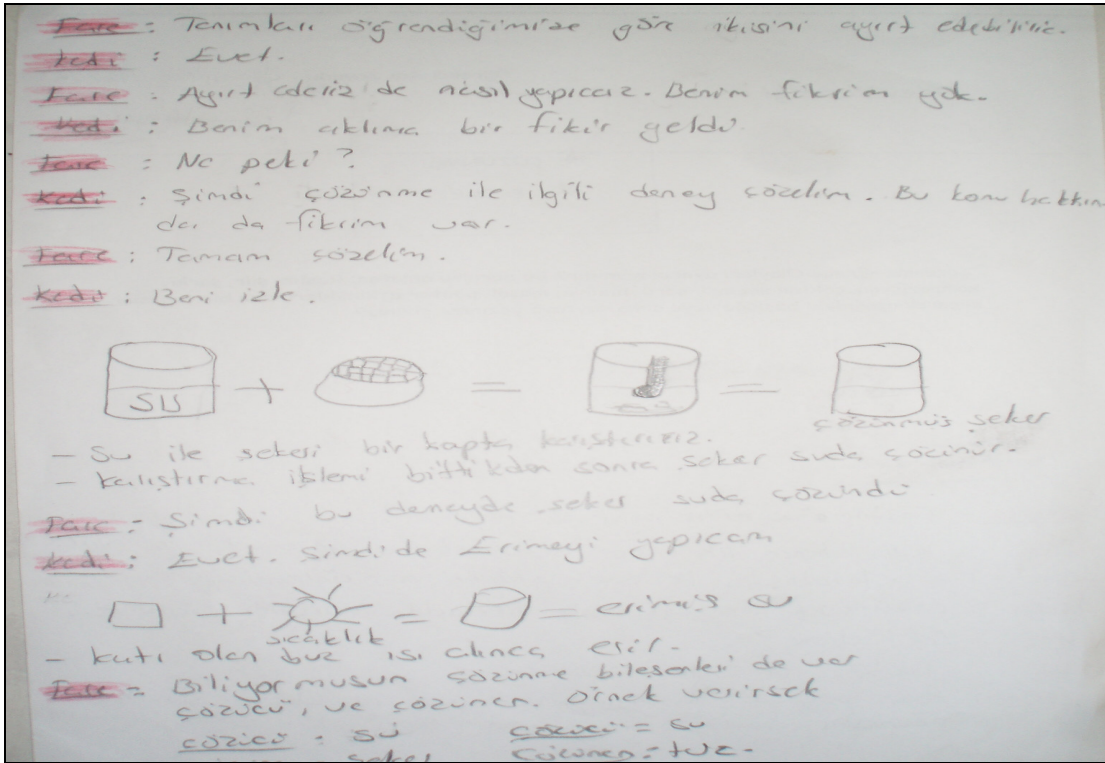 Fare : Tanımları öğrendiğimize göre ikisini ayırt edebiliriz.
Kedi : Evet.
Fare : Ayırt ederiz de nasıl yapıcaz. Benim fikrim yok.
Kedi : Benim aklıma bir fikir geldi.
Fare : Ne peki?
Kedi : Şimdi çözünme ile ilgili deney çözelim. Bu konu hakkın
da da fikrim var.
Fare : Tamam çözelim.
Kedi : Beni izle.
SU + = =
çözünmüş şeker
- Su ile şekeri bir kapta karıştırırız.
- Karıştırma işlemi bittikden sonra şeker suda çözünür.
Fare : Şimdi bu deneyde şeker suda çözündü
Kedi : Evet. Şimdi de Erimeyi yapıcam
+ = = erimiş su
sıcaklık
- Katı olan buz ısı alınca erir.
Fare = Biliyormusun çözünme bileşenleri de var
çözücü, ve çözünen. Örnek verirsek
çözücü : su çözücü = su
şeker çözünen = tuz.